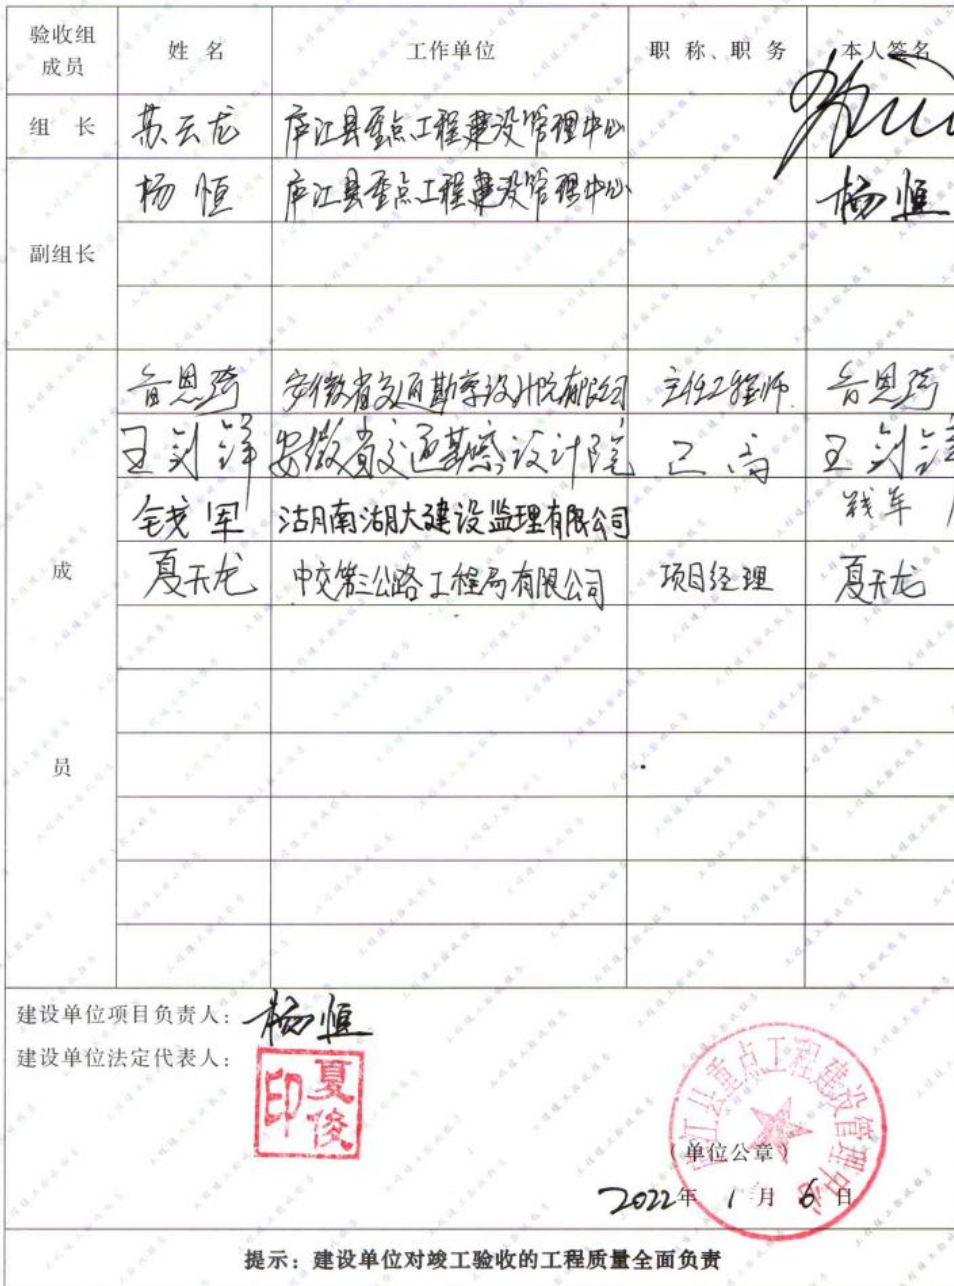 验收组成员 姓 名 工作单位 职 称、职 务 本人签名
组 长 苏云龙 庐江县重点工程建设管理中心
副组长 杨恒 庐江县重点工程建设管理中心 杨恒
成员
昝恩琦 安徽省交通勘察设计院有限公司 主任工程师 昝恩琦
王剑锋 安徽省交通勘察设计院 正高 王剑锋
钱军 湖南湖大建设监理有限公司 钱军
夏天龙 中交第三公路工程局有限公司 项目经理 夏天龙
建设单位项目负责人: 杨恒
建设单位法定代表人:
夏俊印
庐江县重点工程建设管理中心
(单位公章)
2022年 1月 6日
提示:建设单位对竣工验收的工程质量全面负责